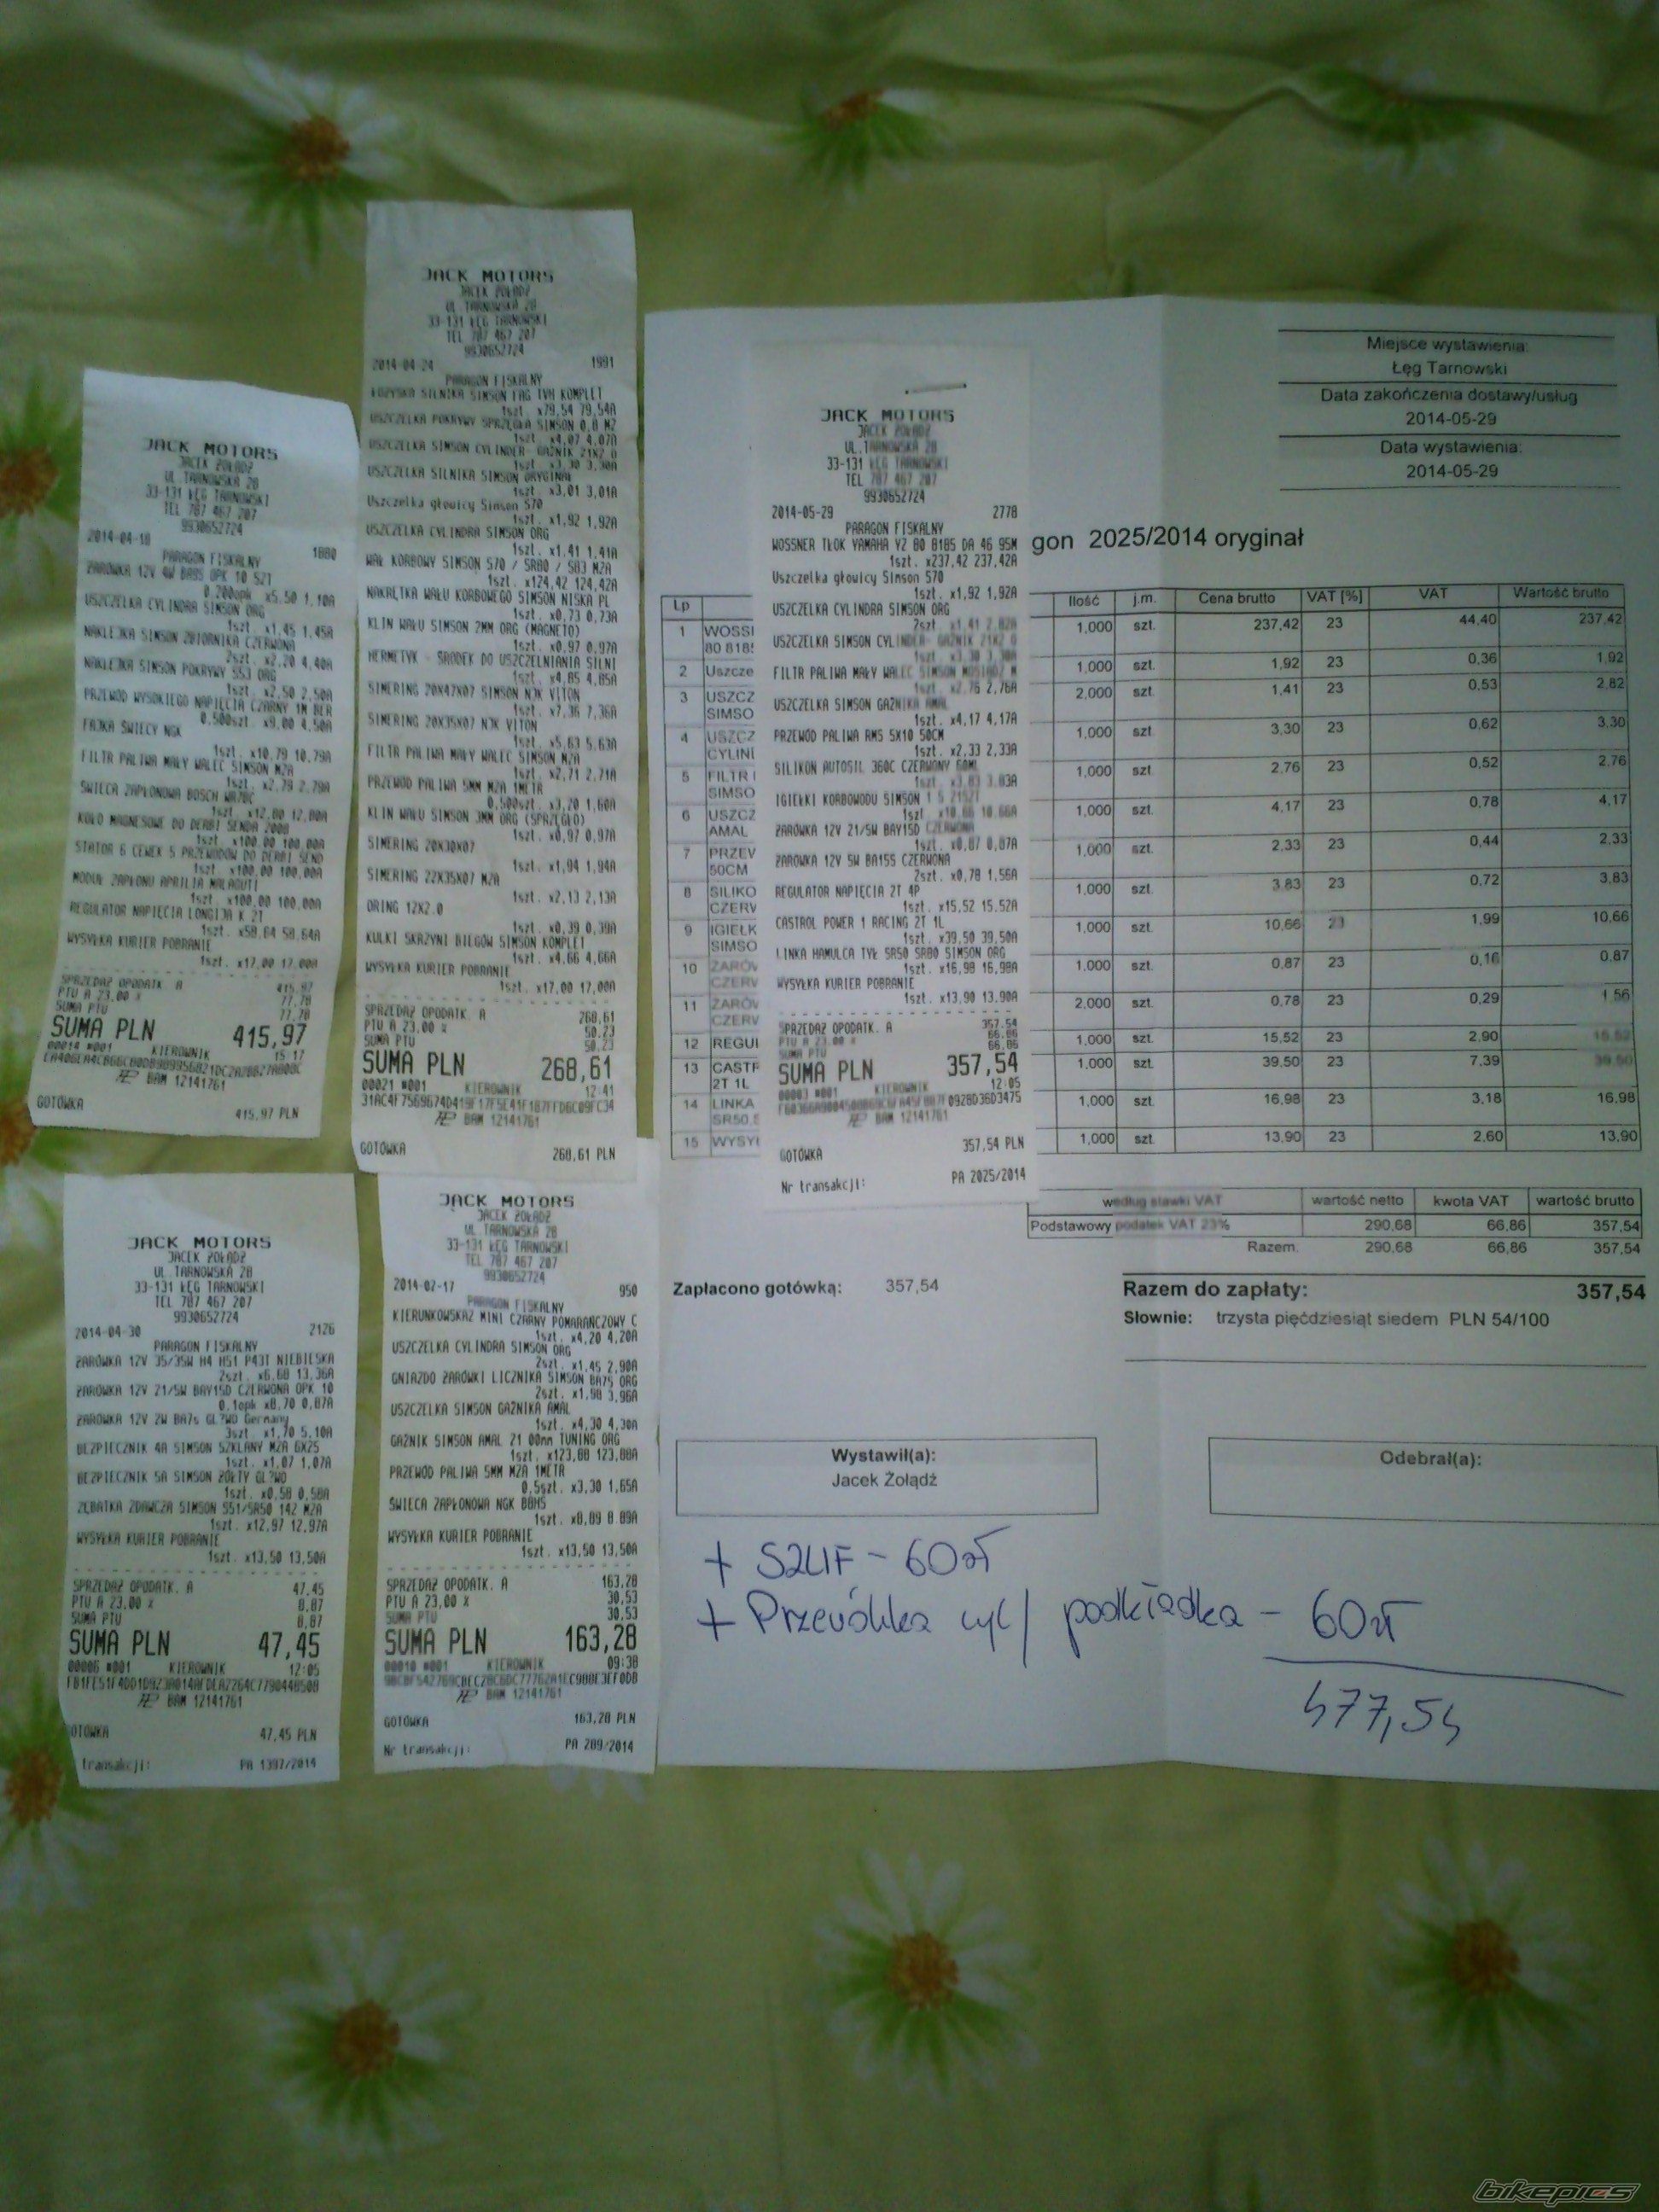 JACK MOTORS
JACEK ŻOŁĄDŹ
UL TARNOWSKA 28
33-131 ŁĘG TARNOWSKI
TEL 787 467 207
9930652724
2014-04-18 1880
PARAGON FISKALNY
ŻARÓWKA 12V 4W BA9S OPK 10 SZT
0,200opk x5,50 1,10A
USZCZELKA CYLINDRA SIMSON ORG
1szt. x1,45 1,45A
NAKLEJKA SIMSON ZBIORNIKA CZERWONA
2szt. x2,20 4,40A
NAKLEJKA SIMSON POKRYWY S53 ORG
1szt. x2,50 2,50A
PRZEWÓD WYSOKIEGO NAPIĘCIA CZARNY 1M BER
0,500szt x9,00 4,50A
FAJKA ŚWIECY NGK
1szt. x10,79 10,79A
FILTR PALIWA MAŁY WALEC SIMSON MZA
1szt. x2,79 2,79A
ŚWIECA ZAPŁONOWA BOSCH
1szt. x12,00 12,00A
KOŁO MAGNESOWE DO DERBI SENDA 2008
1szt. x100,00 100,00A
STATOR 6 CEWEK 5 PRZEWODÓW DO DERBI SEND
1szt. x100,00 100,00A
MODUŁ ZAPŁONU APRILIA MALAGUTI
1szt. x100,00 100,00A
REGULATOR NAPIĘCIA LONGJIA K 2T
1szt. x58,64 58,64A
WYSYŁKA KURIER POBRANIE
1szt. x17,00 17,00A
SPRZEDAŻ OPODATK. A 415,97
PTU A 23,00 % 77,78
SUMA PTU 77,78
SUMA PLN 415,97
00014 #001 KIEROWNIK 15:17
BAM 12141761
GOTÓWKA 415,97 PLN
JACK MOTORS
JACEK ŻOŁĄDŹ
UL TARNOWSKA 28
33-131 ŁĘG TARNOWSKI
TEL 787 467 207
9930652724
2014-04-24 1991
PARAGON FISKALNY
ŁOŻYSKA SILNIKA SIMSON FAG TVH KOMPLET
1szt. x79,54 79,54A
USZCZELKA POKRYWY SPRZĘGŁA SIMSON 0,8 MZ
1szt. x4,07 4,07A
USZCZELKA SIMSON CYLINDER- GAŹNIK 21X2 0
1szt. x3,30 3,30A
USZCZELKA SILNIKA SIMSON ORYGINAŁ
1szt. x3,01 3,01A
Uszczelka głowicy Simson S70
1szt. x1,92 1,92A
USZCZELKA CYLINDRA SIMSON ORG
1szt. x1,41 1,41A
WAŁ KORBOWY SIMSON S70 / SR80 / S83 MZA
1szt. x124,42 124,42A
NAKRĘTKA WAŁU KORBOWEGO SIMSON NISKA PL
1szt. x0,73 0,73A
KLIN WAŁU SIMSON 2MM ORG (MAGNETO)
1szt. x0,97 0,97A
HERMETYK - ŚRODEK DO USZCZELNIANIA SILNI
1szt. x4,85 4,85A
SIMERING 20X47X07 SIMSON NJK VITON
1szt. x7,36 7,36A
SIMERING 20X35X07 NJK VITON
1szt. x5,63 5,63A
FILTR PALIWA MAŁY WALEC SIMSON MZA
1szt. x2,71 2,71A
PRZEWÓD PALIWA 5MM MZA 1METR
0,500szt. x3,20 1,60A
KLIN WAŁU SIMSON 3MM ORG (SPRZĘGŁO)
1szt. x0,97 0,97A
SIMERING 20X30X07
1szt. x1,94 1,94A
SIMERING 22X35X07 MZA
1szt. x2,13 2,13A
ORING 12X2.0
1szt. x0,39 0,39A
KULKI SKRZYNI BIEGÓW SIMSON KOMPLET
1szt. x4,66 4,66A
WYSYŁKA KURIER POBRANIE
1szt. x17,00 17,00A
SPRZEDAŻ OPODATK. A 268,61
PTU A 23,00 % 50,23
SUMA PTU 50,23
SUMA PLN 268,61
00021 #001 KIEROWNIK 12:41
BAM 12141761
GOTÓWKA 268,61 PLN
JACK MOTORS
JACEK ŻOŁĄDŹ
UL.TARNOWSKA 28
33-131 ŁĘG TARNOWSKI
TEL 787 467 207
9930652724
2014-05-29 2778
PARAGON FISKALNY
WOSSNER TŁOK YAMAHA YZ 80 8185 DA 46 95M
1szt. x237,42 237,42A
Uszczelka głowicy Simson S70
1szt. x1,92 1,92A
USZCZELKA CYLINDRA SIMSON ORG
2szt. x1,41 2,82A
USZCZELKA SIMSON CYLINDER- GAŹNIK 21X2 0
1szt. x3,30 3,30A
FILTR PALIWA MAŁY WALEC SIMSON MOSIĄDZ M
1szt. x2,76 2,76A
USZCZELKA SIMSON GAŹNIKA AMAL
1szt. x4,17 4,17A
PRZEWÓD PALIWA RMS 5X10 50CM
1szt. x2,33 2,33A
SILIKON AUTOSIL 360C CZERWONY 60ML
1szt. x3,83 3,83A
IGIEŁKI KORBOWODU SIMSON 1 5 21SZT
1szt. x10,66 10,66A
ŻARÓWKA 12V 21/5W BAY15D CZERWONA
1szt. x0,87 0,87A
ŻARÓWKA 12V 5W BA15S CZERWONA
2szt. x0,78 1,56A
REGULATOR NAPIĘCIA 2T 4P
1szt. x15,52 15,52A
CASTROL POWER 1 RACING 2T 1L
1szt. x39,50 39,50A
LINKA HAMULCA TYŁ SR50 SR80 SIMSON ORG
1szt. x16,98 16,98A
WYSYŁKA KURIER POBRANIE
1szt. x13,90 13,90A
SPRZEDAŻ OPODATK. A 357,54
PTU A 23,00 % 66,86
SUMA PTU 66,86
SUMA PLN 357,54
00003 #001 KIEROWNIK 12:05
BAM 12141761
GOTÓWKA 357,54 PLN
Nr transakcji: PA 2025/2014
Miejsce wystawienia:
Łęg Tarnowski
Data zakończenia dostawy/usług
2014-05-29
Data wystawienia:
2014-05-29
gon 2025/2014 oryginał
Lp Ilość j.m. Cena brutto VAT [%] VAT Wartość brutto
1 WOSSI 1,000 szt. 237,42 23 44,40 237,42
80 818
2 Uszcze 1,000 szt. 1,92 23 0,36 1,92
3 USZCZ 2,000 szt. 1,41 23 0,53 2,82
SIMSO
4 USZCZ 1,000 szt. 3,30 23 0,62 3,30
CYLIN
5 FILTR 1,000 szt. 2,76 23 0,52 2,76
SIMSO
6 USZCZ 1,000 szt. 4,17 23 0,78 4,17
AMAL
7 PRZEV 1,000 szt. 2,33 23 0,44 2,33
50CM
8 SILIKO 1,000 szt. 3,83 23 0,72 3,83
CZERV
9 IGIEŁK 1,000 szt. 10,66 23 1,99 10,66
SIMSO
10 ŻARÓV 1,000 szt. 0,87 23 0,16 0,87
CZERV
11 ŻARÓV 2,000 szt. 0,78 23 0,29 1,56
CZERV
12 REGUI 1,000 szt. 15,52 23 2,90 15,52
13 CASTF 1,000 szt. 39,50 23 7,39 39,50
2T 1L
14 LINKA 1,000 szt. 16,98 23 3,18 16,98
SR50
15 WYSYI 1,000 szt. 13,90 23 2,60 13,90
według stawki VAT wartość netto kwota VAT wartość brutto
Podstawowy podatek VAT 23% 290,68 66,86 357,54
Razem: 290,68 66,86 357,54
Zapłacono gotówką: 357,54
Razem do zapłaty: 357,54
Słownie: trzysta pięćdziesiąt siedem PLN 54/100
Wystawił(a):
Jacek Żołądź
Odebrał(a):
+ SZLIF - 60zł
+ Przeróbka cyl / podkładka - 60zł
477,54
JACK MOTORS
JACEK ŻOŁĄDŹ
UL TARNOWSKA 28
33-131 ŁĘG TARNOWSKI
TEL 787 467 207
9930652724
2014-04-30 2126
PARAGON FISKALNY
ŻARÓWKA 12V 35/35W H4 HS1 P43T NIEBIESKA
2szt. x6,68 13,36A
ŻARÓWKA 12V 21/5W BAY15D CZERWONA OPK 10
0,1opk x8,70 0,87A
ŻARÓWKA 12V 2W BA7s GL?WD Germany
3szt x1,70 5,10A
BEZPIECZNIK 4A SIMSON SZKLANY MZA 6X25
1szt. x1,07 1,07A
BEZPIECZNIK 5A SIMSON ŻÓŁTY GL?WD
1szt. x0,58 0,58A
ZĘBATKA ZDAWCZA SIMSON S51/SR50 14Z MZA
1szt. x12,97 12,97A
WYSYŁKA KURIER POBRANIE
1szt. x13,50 13,50A
SPRZEDAŻ OPODATK. A 47,45
PTU A 23,00 % 8,87
SUMA PTU 8,87
SUMA PLN 47,45
00006 #001 KIEROWNIK 12:05
BAM 12141761
OTÓWKA 47,45 PLN
transakcji: PA 1397/2014
JACK MOTORS
JACEK ŻOŁĄDŹ
UL TARNOWSKA 28
33-131 ŁĘG TARNOWSKI
TEL 787 467 207
9930652724
2014-02-17 950
PARAGON FISKALNY
KIERUNKOWSKAZ MINI CZARNY POMARAŃCZOWY C
1szt. x4,20 4,20A
USZCZELKA CYLINDRA SIMSON ORG
2szt. x1,45 2,90A
GNIAZDO ŻARÓWKI LICZNIKA SIMSON BA7S ORG
2szt. x1,98 3,96A
USZCZELKA SIMSON GAŹNIKA AMAL
1szt. x4,30 4,30A
GAŹNIK SIMSON AMAL 21 00mm TUNING ORG
1szt. x123,88 123,88A
PRZEWÓD PALIWA 5MM MZA 1METR
0,5szt. x3,30 1,65A
ŚWIECA ZAPŁONOWA NGK B8HS
1szt. x8,89 8,89A
WYSYŁKA KURIER POBRANIE
1szt. x13,50 13,50A
SPRZEDAŻ OPODATK. A 163,28
PTU A 23,00 % 30,53
SUMA PTU 30,53
SUMA PLN 163,28
00010 #001 KIEROWNIK 09:38
BAM 12141761
GOTÓWKA 163,28 PLN
Nr transakcji: PA 289/2014
bikepics